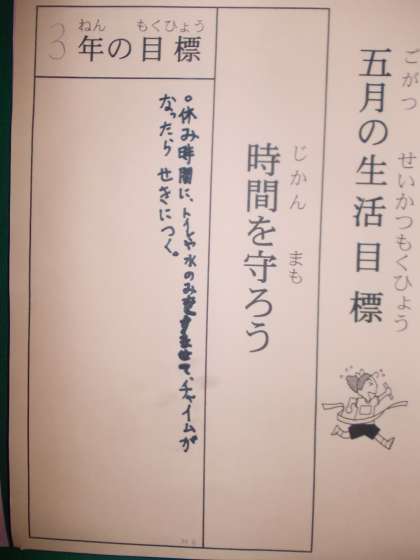 五月の生活目標
ごがつ せいかつもくひょう
時間を守ろう
じかん まも
3年の目標
ねん もくひょう
○休み時間に、トイレや水のみをすませて、チャイムが
なったら せきにつく。